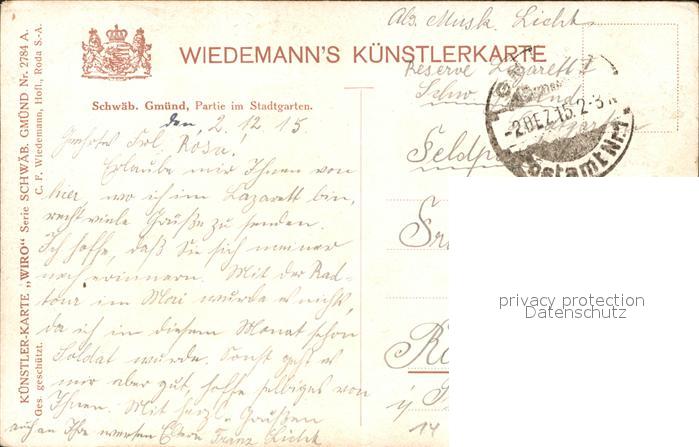 WIEDEMANN'S KÜNSTLERKARTE
Schwäb. Gmünd, Partie im Stadtgarten.
KÜNSTLER-KARTE „WIRO" Serie SCHWÄB. GMÜND Nr. 2784 A.
Ges. geschützt. C. F. Wiedemann, Hofl., Roda S.-A.
den, 2.12.15.
Geehrtes Frl. Rosa!
Erlaube mir Ihnen von
hier, wo ich im Lazarett bin,
recht viele Grüße zu senden.
Ich hoffe, daß Sie sich meiner
noch erinnern. Mit der Rad-
tour im Mai wurde es nichts,
da ich in diesem Monat schon
Soldat wurde. Sonst geht es
mir aber gut, hoffe selbiges von
Ihnen. Mit herzl. Grüßen
auch an Ihre werten Eltern Franz Licht
Abs. Musk. Licht
Reserve Lazarett I
Gmünd
Feldp
-2.DEZ.15. 2-3 N
Postamt Nr. 1
14
privacy protection
Datenschutz